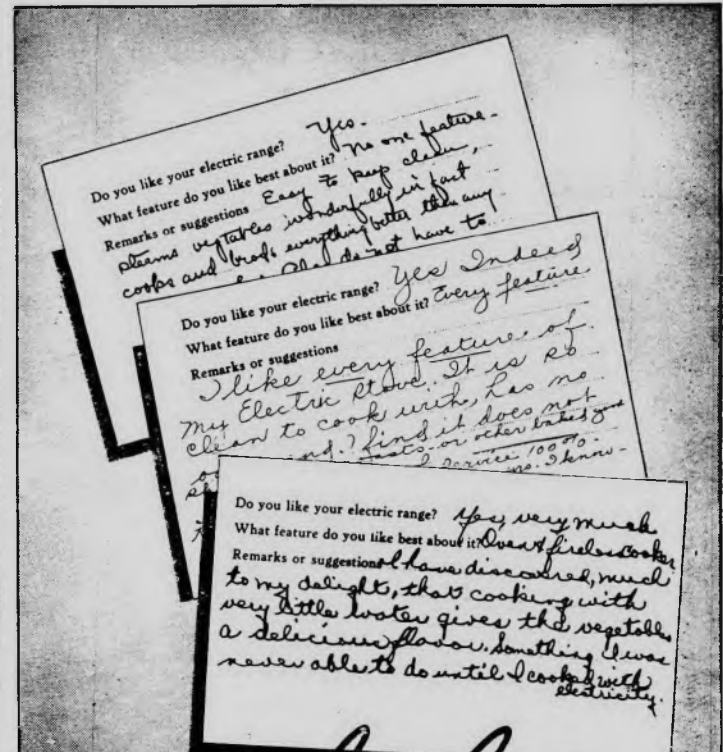 Do you like your electric range? Yes.
What feature do you like best about it? No one feature.
Remarks or suggestions Easy to keep clean,
steams vegtables wonderfully in fact
cooks and broils everything better than any
do not have to
Do you like your electric range? Yes Indeed
What feature do you like best about it? Every feature
Remarks or suggestions
I like every feature of
my Electric Stove. It is so
clean to cook with, has no
find it does not
or other baked
Service 100%
I know-
Do you like your electric range? Yes, very much
What feature do you like best about it? Oven & fireless cooker
Remarks or suggestions I have discovered, much
to my delight, that cooking with
very little water gives the vegetables
a delicious flavor. Something I was
never able to do until I cooked with
electricity.